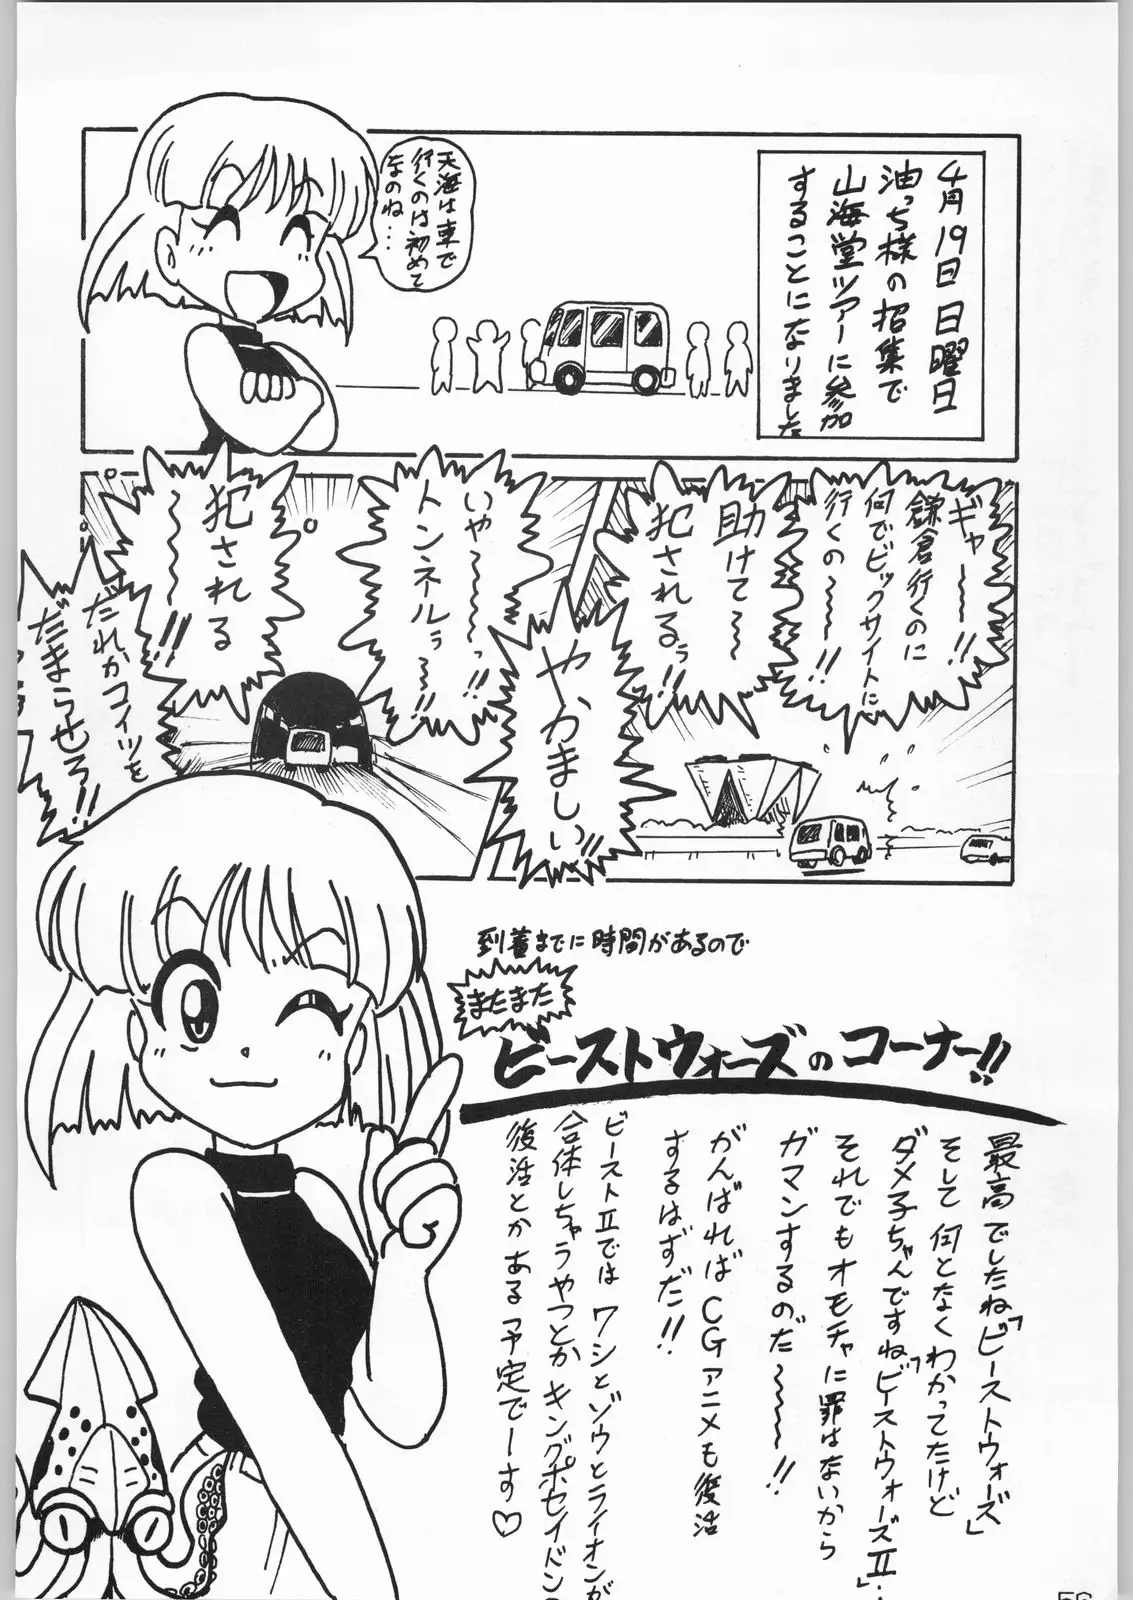 4月19日日曜日
油っち様の招集で
山海堂ツアーに参加
することになりました
天海は車で
行くのは初めて
なのね…
ギャー〜〜!!
鎌倉行くのに
何でビッグサイトに
行くの〜〜!!
助けて〜
犯されるぅ!!
やかましい!!
いや〜〜っ!!
トンネルぅ〜〜!!
犯される
〜〜〜!!
だれかコイツを
だまらせろ!!
到着までに時間があるので
またまた
ビーストウォーズのコーナー!!
最高でしたね「ビーストウォーズ」
そして何となくわかってたけど
ダメ子ちゃんですね「ビーストウォーズⅡ」…
それでもオモチャに罪はないから
ガマンするのだ〜〜!!
がんばればCGアニメも復活
するはずだ!!
ビーストⅡではワシとゾウとライオンが
合体しちゃうやつとかキングポセイドンの
復活とかある予定でーす♡